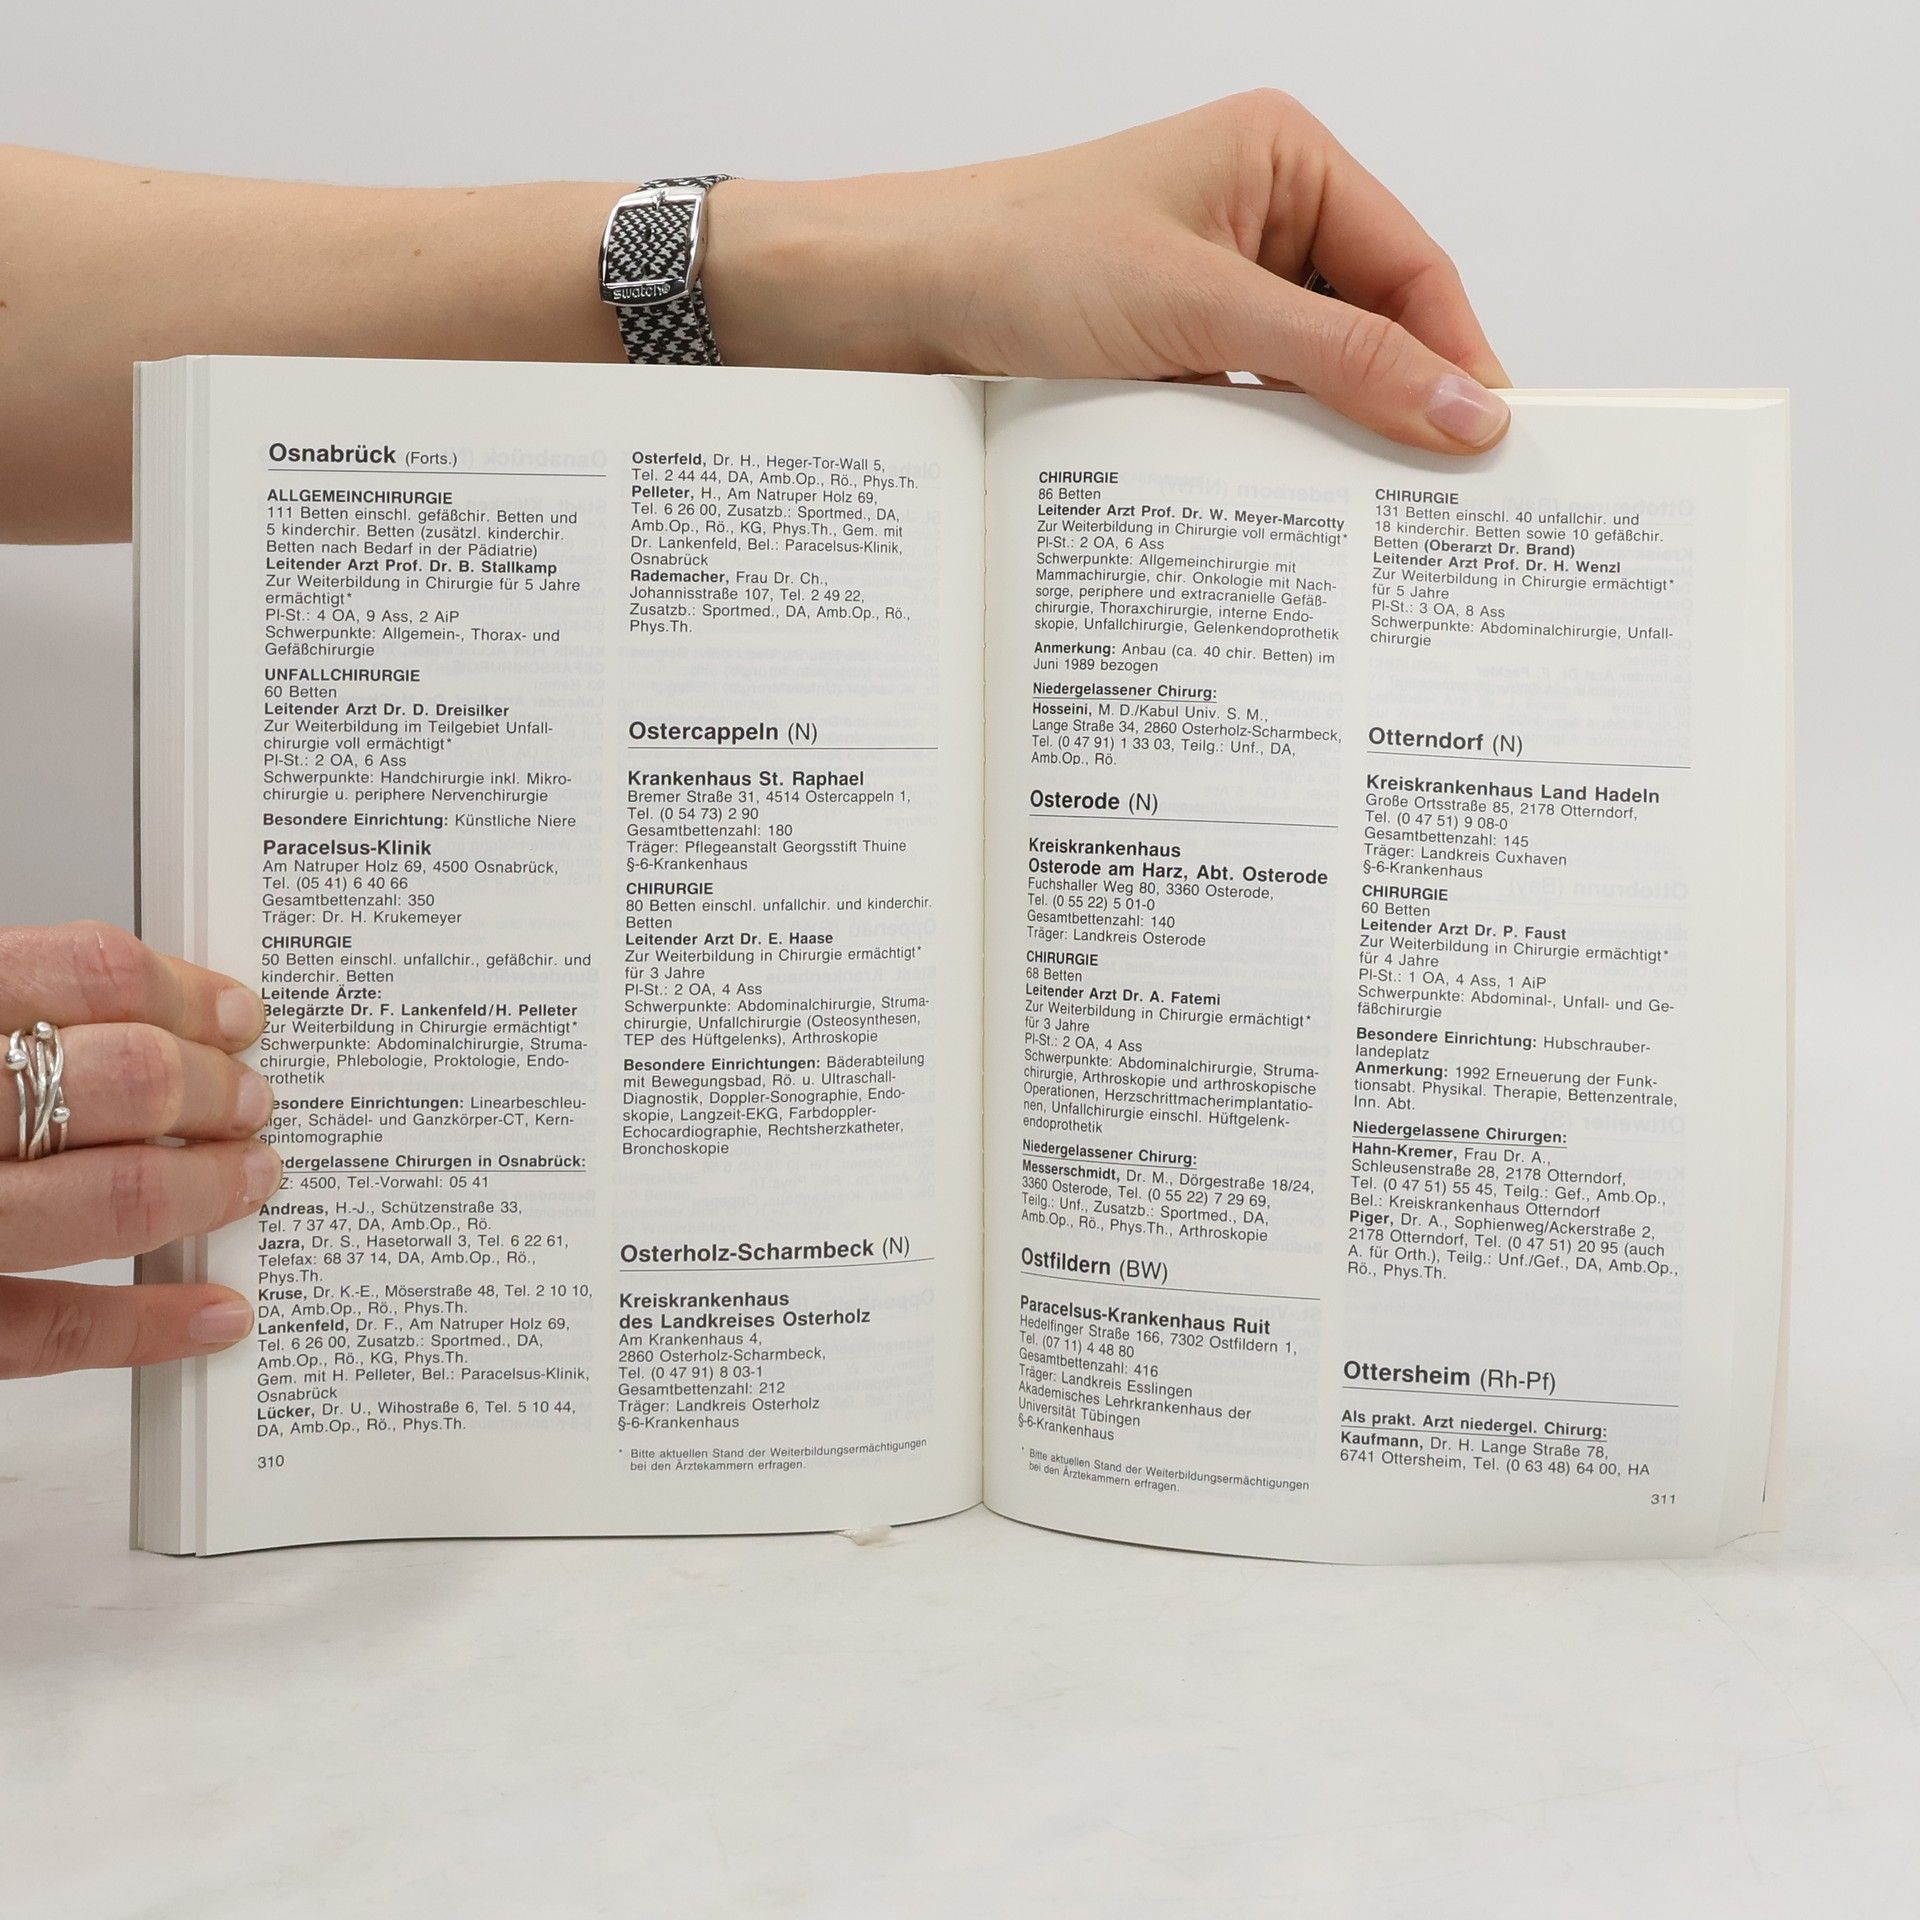 swatch®
Osnabrück (Forts.)
ALLGEMEINCHIRURGIE
111 Betten einschl. gefäßchir. Betten und
5 kinderchir. Betten (zusätzl. kinderchir.
Betten nach Bedarf in der Pädiatrie)
Leitender Arzt Prof. Dr. B. Stallkamp
Zur Weiterbildung in Chirurgie für 5 Jahre
ermächtigt*
Pl-St.: 4 OA, 9 Ass, 2 AiP
Schwerpunkte: Allgemein-, Thorax- und
Gefäßchirurgie
UNFALLCHIRURGIE
60 Betten
Leitender Arzt Dr. D. Dreisilker
Zur Weiterbildung im Teilgebiet Unfall-
chirurgie voll ermächtigt*
Pl-St.: 2 OA, 6 Ass
Schwerpunkte: Handchirurgie inkl. Mikro-
chirurgie u. periphere Nervenchirurgie
Besondere Einrichtung: Künstliche Niere
Paracelsus-Klinik
Am Natruper Holz 69, 4500 Osnabrück,
Tel. (05 41) 6 40 66
Gesamtbettenzahl: 350
Träger: Dr. H. Krukemeyer
CHIRURGIE
50 Betten einschl. unfallchir., gefäßchir. und
kinderchir. Betten
Leitende Ärzte:
Belegärzte Dr. F. Lankenfeld/H. Pelleter
Zur Weiterbildung in Chirurgie ermächtigt*
Schwerpunkte: Abdominalchirurgie, Struma-
chirurgie, Phlebologie, Proktologie, Endo-
prothetik
esondere Einrichtungen: Linearbeschleu-
iger, Schädel- und Ganzkörper-CT, Kern-
spintomographie
edergelassene Chirurgen in Osnabrück:
Z: 4500, Tel.-Vorwahl: 05 41
Andreas, H.-J., Schützenstraße 33,
Tel. 7 37 47, DA, Amb.Op., Rö.
Jazra, Dr. S., Hasetorwall 3, Tel. 6 22 61,
Telefax: 68 37 14, DA, Amb.Op., Rö.,
Phys.Th.
Kruse, Dr. K.-E., Möserstraße 48, Tel. 2 10 10,
DA, Amb.Op., Rö., Phys.Th.
Lankenfeld, Dr. F., Am Natruper Holz 69,
Tel. 6 26 00, Zusatzb.: Sportmed., DA,
Amb.Op., Rö., KG, Phys.Th.
Gem. mit H. Pelleter, Bel.: Paracelsus-Klinik,
Osnabrück
Lücker, Dr. U., Wihostraße 6, Tel. 5 10 44,
DA, Amb.Op., Rö., Phys.Th.
310
Osterfeld, Dr. H., Heger-Tor-Wall 5,
Tel. 2 44 44, DA, Amb.Op., Rö., Phys.Th.
Pelleter, H., Am Natruper Holz 69,
Tel. 6 26 00, Zusatzb.: Sportmed., DA,
Amb.Op., Rö., KG, Phys.Th., Gem. mit
Dr. Lankenfeld, Bel.: Paracelsus-Klinik,
Osnabrück
Rademacher, Frau Dr. Ch.,
Johannisstraße 107, Tel. 2 49 22,
Zusatzb.: Sportmed., DA, Amb.Op., Rö.,
Phys.Th.
Ostercappeln (N)
Krankenhaus St. Raphael
Bremer Straße 31, 4514 Ostercappeln 1,
Tel. (0 54 73) 2 90
Gesamtbettenzahl: 180
Träger: Pflegeanstalt Georgsstift Thuine
§-6-Krankenhaus
CHIRURGIE
80 Betten einschl. unfallchir. und kinderchir.
Betten
Leitender Arzt Dr. E. Haase
Zur Weiterbildung in Chirurgie ermächtigt*
für 3 Jahre
Pl-St.: 2 OA, 4 Ass
Schwerpunkte: Abdominalchirurgie, Struma-
chirurgie, Unfallchirurgie (Osteosynthesen,
TEP des Hüftgelenks), Arthroskopie
Besondere Einrichtungen: Bäderabteilung
mit Bewegungsbad, Rö. u. Ultraschall-
Diagnostik, Doppler-Sonographie, Endo-
skopie, Langzeit-EKG, Farbdoppler-
Echocardiographie, Rechtsherzkatheter,
Bronchoskopie
Osterholz-Scharmbeck (N)
Kreiskrankenhaus
des Landkreises Osterholz
Am Krankenhaus 4,
2860 Osterholz-Scharmbeck,
Tel. (0 47 91) 8 03-1
Gesamtbettenzahl: 212
Träger: Landkreis Osterholz
§-6-Krankenhaus
* Bitte aktuellen Stand der Weiterbildungsermächtigungen
bei den Ärztekammern erfragen.
CHIRURGIE
86 Betten
Leitender Arzt Prof. Dr. W. Meyer-Marcotty
Zur Weiterbildung in Chirurgie voll ermächtigt*
Pl-St.: 2 OA, 6 Ass
Schwerpunkte: Allgemeinchirurgie mit
Mammachirurgie, chir. Onkologie mit Nach-
sorge, periphere und extracranielle Gefäß-
chirurgie, Thoraxchirurgie, interne Endo-
skopie, Unfallchirurgie, Gelenkendoprothetik
Anmerkung: Anbau (ca. 40 chir. Betten) im
Juni 1989 bezogen
Niedergelassener Chirurg:
Hosseini, M. D./Kabul Univ. S. M.,
Lange Straße 34, 2860 Osterholz-Scharmbeck,
Tel. (0 47 91) 1 33 03, Teilg.: Unf., DA,
Amb.Op., Rö.
Osterode (N)
Kreiskrankenhaus
Osterode am Harz, Abt. Osterode
Fuchshaller Weg 80, 3360 Osterode,
Tel. (0 55 22) 5 01-0
Gesamtbettenzahl: 140
Träger: Landkreis Osterode
CHIRURGIE
68 Betten
Leitender Arzt Dr. A. Fatemi
Zur Weiterbildung in Chirurgie ermächtigt*
für 3 Jahre
Pl-St.: 2 OA, 4 Ass
Schwerpunkte: Abdominalchirurgie, Struma-
chirurgie, Arthroskopie und arthroskopische
Operationen, Herzschrittmacherimplantatio-
nen, Unfallchirurgie einschl. Hüftgelenk-
endoprothetik
Niedergelassener Chirurg:
Messerschmidt, Dr. M., Dörgestraße 18/24,
3360 Osterode, Tel. (0 55 22) 7 29 69,
Teilg.: Unf., Zusatzb.: Sportmed., DA,
Amb.Op., Rö., Phys.Th., Arthroskopie
Ostfildern (BW)
Paracelsus-Krankenhaus Ruit
Hedelfinger Straße 166, 7302 Ostfildern 1,
Tel. (07 11) 4 48 80
Gesamtbettenzahl: 416
Träger: Landkreis Esslingen
Akademisches Lehrkrankenhaus der
Universität Tübingen
§-6-Krankenhaus
* Bitte aktuellen Stand der Weiterbildungsermächtigungen
bei den Ärztekammern erfragen.
CHIRURGIE
131 Betten einschl. 40 unfallchir. und
18 kinderchir. Betten sowie 10 gefäßchir.
Betten (Oberarzt Dr. Brand)
Leitender Arzt Prof. Dr. H. Wenzl
Zur Weiterbildung in Chirurgie ermächtigt*
für 5 Jahre
Pl-St.: 3 OA, 8 Ass
Schwerpunkte: Abdominalchirurgie, Unfall-
chirurgie
Otterndorf (N)
Kreiskrankenhaus Land Hadeln
Große Ortsstraße 85, 2178 Otterndorf,
Tel. (0 47 51) 9 08-0
Gesamtbettenzahl: 145
Träger: Landkreis Cuxhaven
§-6-Krankenhaus
CHIRURGIE
60 Betten
Leitender Arzt Dr. P. Faust
Zur Weiterbildung in Chirurgie ermächtigt*
für 4 Jahre
Pl-St.: 1 OA, 4 Ass, 1 AiP
Schwerpunkte: Abdominal-, Unfall- und Ge-
fäßchirurgie
Besondere Einrichtung: Hubschrauber-
landeplatz
Anmerkung: 1992 Erneuerung der Funk-
tionsabt. Physikal. Therapie, Bettenzentrale,
Inn. Abt.
Niedergelassene Chirurgen:
Hahn-Kremer, Frau Dr. A.,
Schleusenstraße 28, 2178 Otterndorf,
Tel. (0 47 51) 55 45, Teilg.: Gef., Amb.Op.,
Bel.: Kreiskrankenhaus Otterndorf
Piger, Dr. A., Sophienweg/Ackerstraße 2,
2178 Otterndorf, Tel. (0 47 51) 20 95 (auch
A. für Orth.), Teilg.: Unf./Gef., DA, Amb.Op.,
Rö., Phys.Th.
Ottersheim (Rh-Pf)
Als prakt. Arzt niedergel. Chirurg:
Kaufmann, Dr. H. Lange Straße 78,
6741 Ottersheim, Tel. (0 63 48) 64 00, HA
311